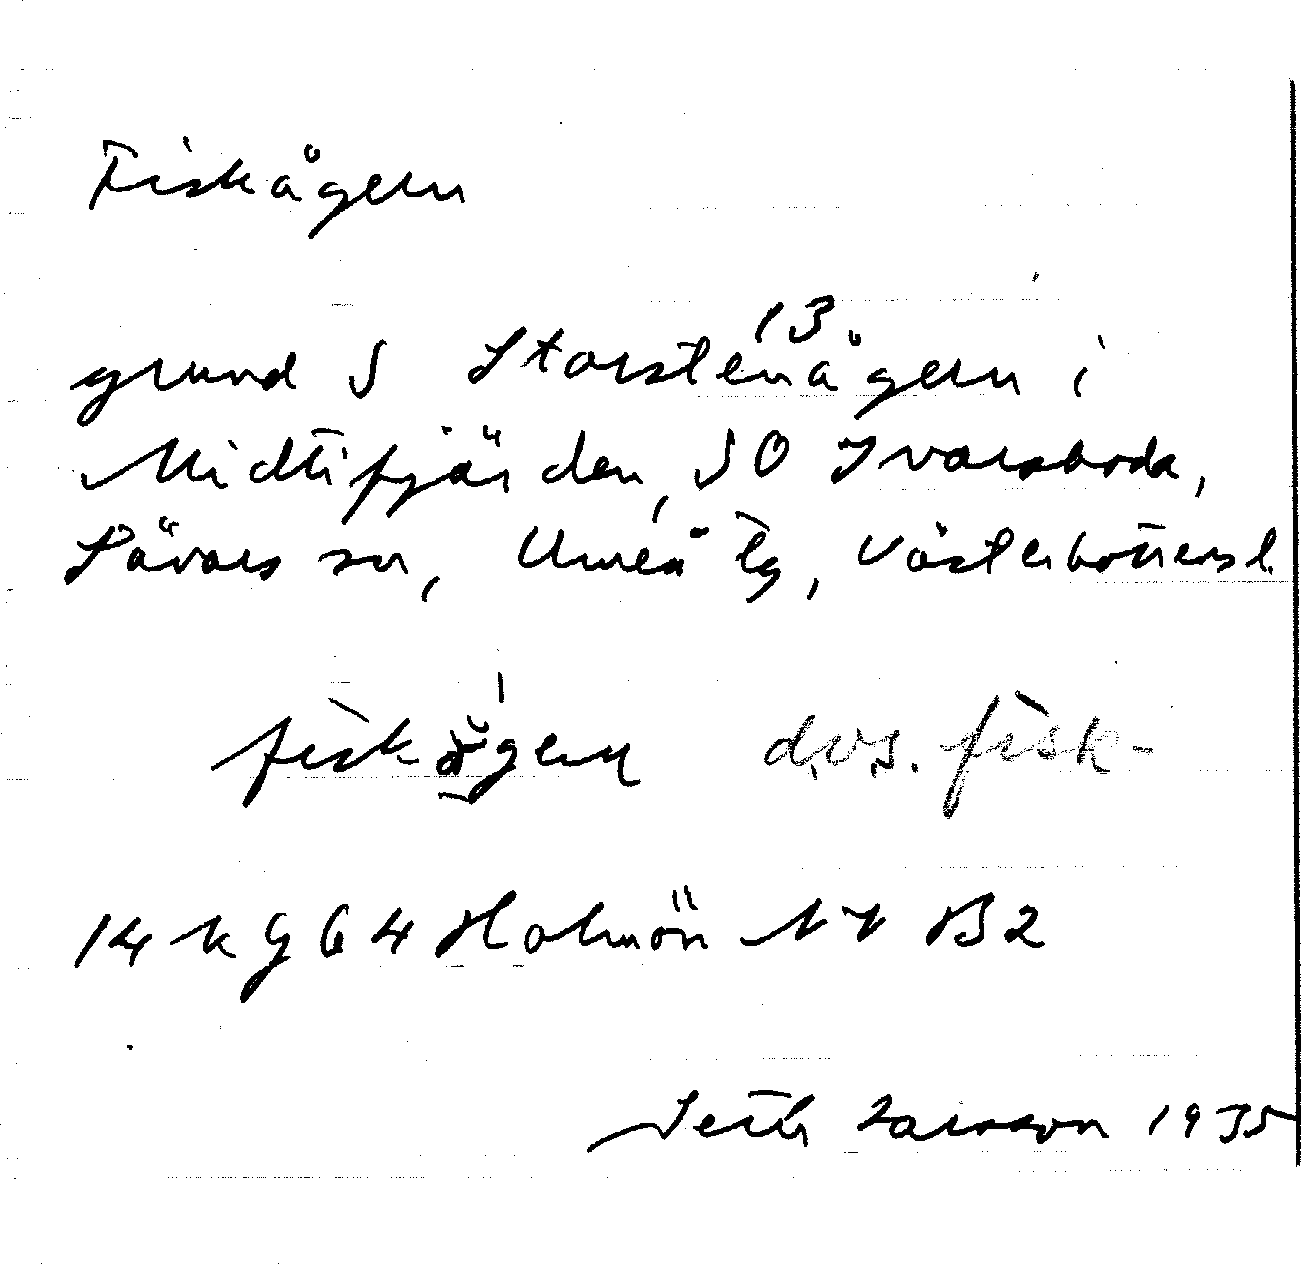 Fiskågern
13
grund S Storstenågern i
Midtifjärden, SO Ivarsboda,
Sävars sn, Umeå tg, Västerbottens l.
dvs. fisk-
14 k g 64 Holmön NV B2
Seth Larsson 1935